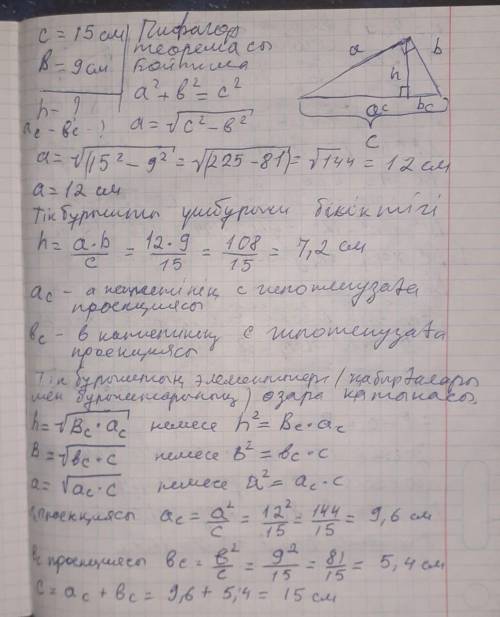 c = 15 см
Пифагор
теоремасы
бойынша
B = 9 см
a² + b² = c²
h - ?
ac - bc - ?
a = √c² - b²
a b h ac bc c
a = √15² - 9² = √(225 - 81) = √144 = 12 см
a = 12 см
Тік бұрышты үшбұрыш биіктігі
h = a·b/c = 12·9/15 = 108/15 = 7,2 см
ac - a катетінің c гипотенузаға
проекциясы
bc - b катетінің c гипотенузаға
проекциясы
Тік бұрыштың элементтері (қабырғалары
мен бұрыштарының) өзара қатынасы
h = √bc·ac немесе h² = bc·ac
b = √bc·c немесе b² = bc·c
a = √ac·c немесе a² = ac·c
проекциясы ac = a²/c = 12²/15 = 144/15 = 9,6 см
bc проекциясы bc = b²/c = 9²/15 = 81/15 = 5,4 см
c = ac + bc = 9,6 + 5,4 = 15 см